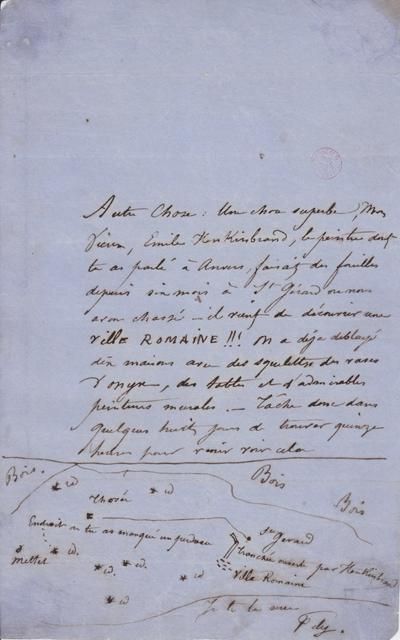 Autre Chose: Une chose superbe, Mon
Vieux, Emile Kenkinbrand, le peintre dont
tu as parlé à Anvers, faisait des fouilles
depuis six mois à St Gérard ou nous
avons chassé – il vient de découvrir une
VILLE ROMAINE!!! On a déja deblayé
dix maisons avec des squelettes des vases
d'onyx, des tables et d'admirables
peintures murales. – Tâche donc dans
quelques huit jours de trouver quinze
pour venir voir cela
Bois.
id
Bois
Bois
id
id
Endroit ou tu as manqué un perdreau
St Gérard
Mettet
id.
id
id.
id
tranchée ouverte par Kenkinbrand
Ville Romaine
id
Je te serre
Fély.